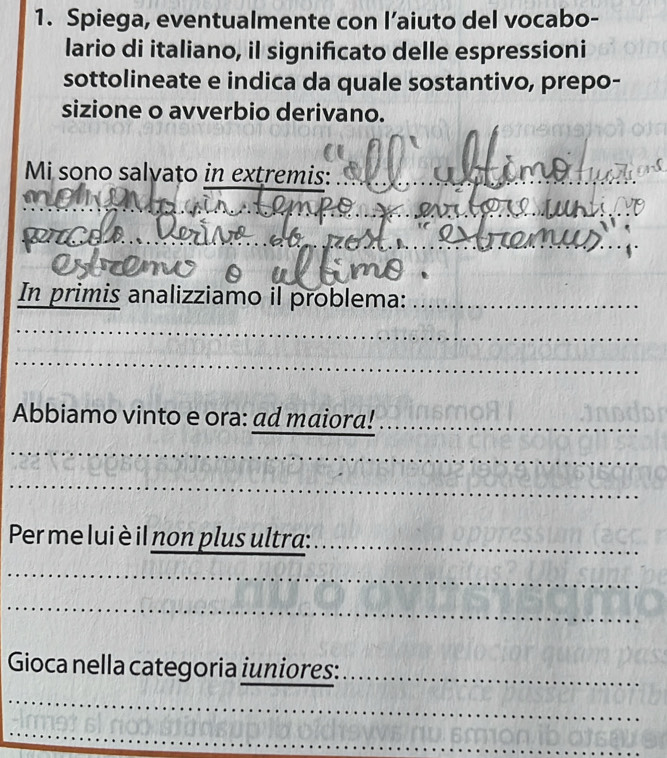 1. Spiega, eventualmente con l'aiuto del vocabo-
lario di italiano, il significato delle espressioni
sottolineate e indica da quale sostantivo, prepo-
sizione o avverbio derivano.
Mi sono salvato in extremis: all'ultimo
momento, in tempo x evitare un
pericolo. Deriva da "extremus":
estremo o ultimo.
In primis analizziamo il problema:
Abbiamo vinto e ora: ad maiora!
Per me lui è il non plus ultra:
Gioca nella categoria iuniores: